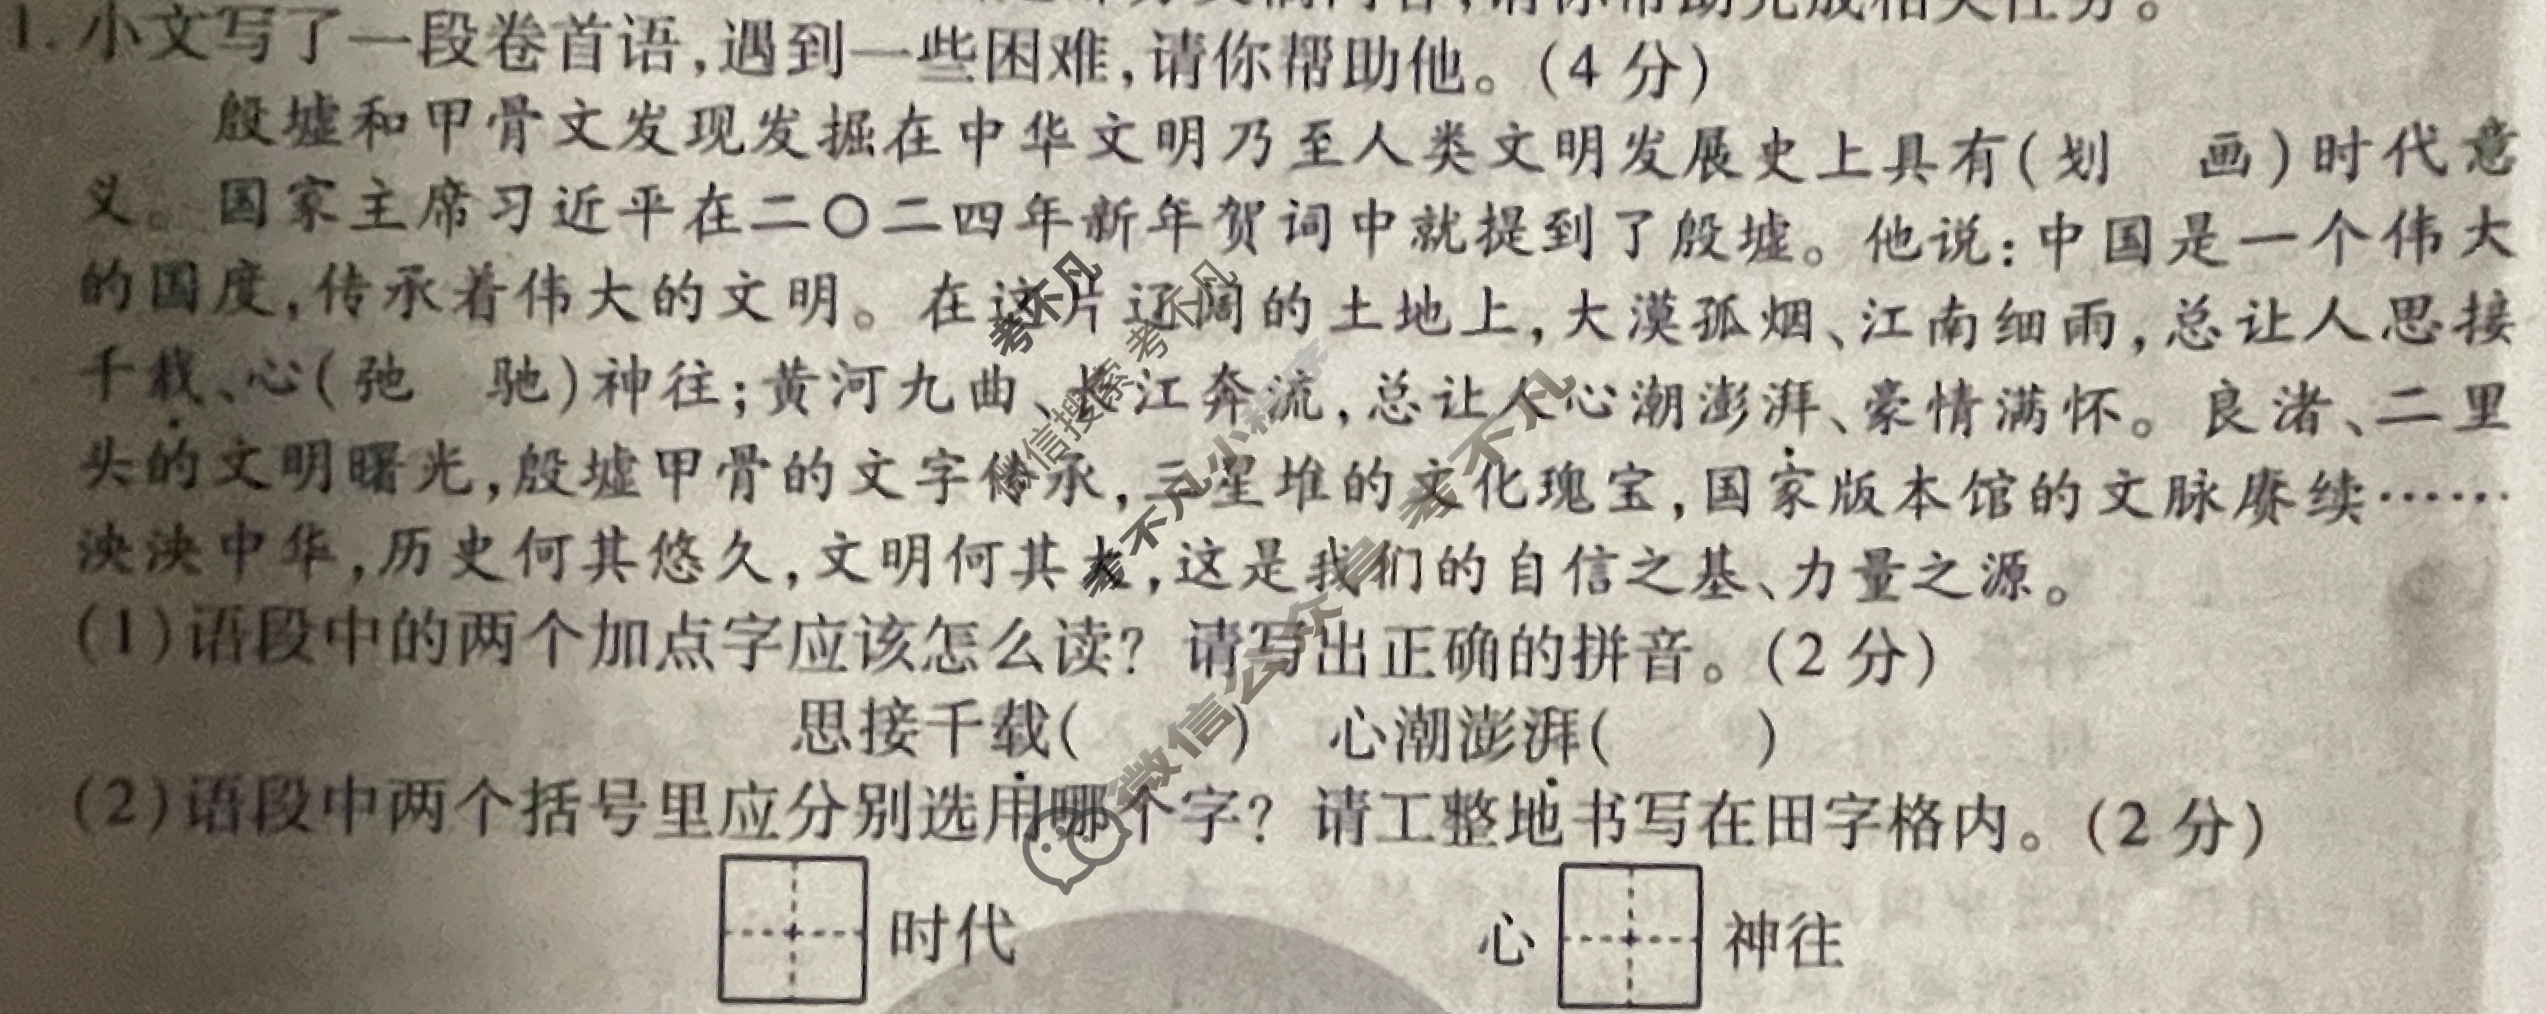 1. 小文写了一段卷首语,遇到一些困难,请你帮助他。(4 分)
殷墟和甲骨文发现发掘在中华文明乃至人类文明发展史上具有(划 画)时代意
义。国家主席习近平在二〇二四年新年贺词中就提到了殷墟。他说:中国是一个伟大
的国度,传承着伟大的文明。在这片辽阔的土地上,大漠孤烟、江南细雨,总让人思接
千载、心(弛 驰)神往;黄河九曲、长江奔流,总让人心潮澎湃、豪情满怀。良渚、二里
头的文明曙光,殷墟甲骨的文字传承,三星堆的文化瑰宝,国家版本馆的文脉赓续……
泱泱中华,历史何其悠久,文明何其,这是我们的自信之基、力量之源。
(1)语段中的两个加点字应该怎么读? 请写出正确的拼音。(2 分)
思接千载( ) 心潮澎湃( )
(2)语段中两个括号里应分别选用哪个字? 请工整地书写在田字格内。(2 分)
时代 心 神往
考不凡
微信搜索 考不凡
考不凡小程序
微信公众号 考不凡